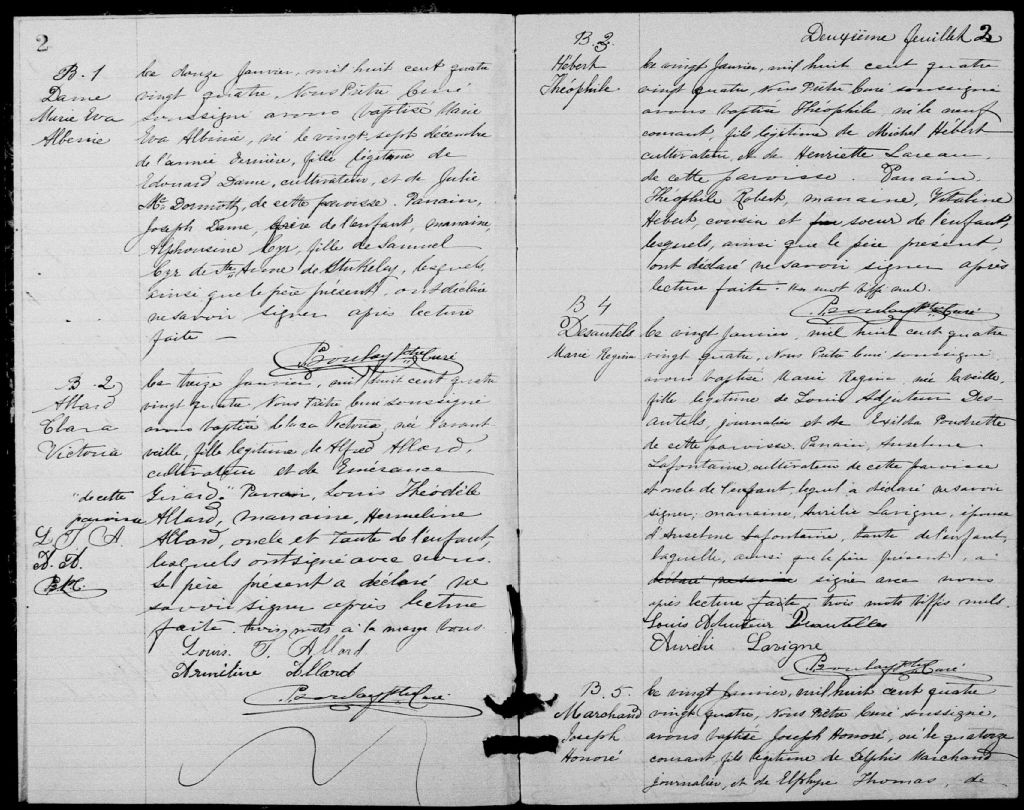 2
B. 1
Dame
Marie Eva
Albenie
Le douze Janvier, mil huit cent quatre
vingt quatre, Nous Prêtre Curé
soussigné avons baptisé Marie
Eva Albinie, né le vingt sept décembre
de l'année dernière, fille légitime de
Edouard Dame, cultivateur, et de Julie
Mc Dormoth, de cette paroisse. Parrain,
Joseph Dame, frère de l'enfant, marraine,
Alphonsine Cyr, fille de Samuel
Cyr de Ste Anne de Stukelay, lesquels,
ainsi que le père présent, ont déclaré
ne savoir signer après lecture
faite —
Boulay Ptre Curé
B. 2
Allard
Clara
Victoria
"de cette
paroisse
L. T. A.
A. A.
Le treize Janvier, mil huit cent quatre
vingt quatre Nous Prêtre Curé soussigné
avons baptisé Clara Victoria, née l'avant
veille, fille légitime de Alfred Allard,
cultivateur et de Emérance
Girard." Parrain, Louis Théodèle
Allard, marraine, Hermeline
Allard, oncle et tante de l'enfant,
lesquels ont signé avec nous.
Le père présent a déclaré ne
savoir signer après lecture
faite. trois mots à la marge bons
Louis. T. Allard
Arméline Allard
Boulay Ptre Curé
Deuxième feuillet 2
B. 3.
Hébert
Théophile
Le vingt Janvier, mil huit cent quatre
vingt quatre, Nous Prêtre Curé soussigné
avons baptisé Théophile, né le neuf
courant, fils légitime de Michel Hébert
cultivateur, et de Henriette Lareau,
de cette paroisse. Parrain,
Théophile Robert, marraine, Vitaline
Hebert, cousin et soeur de l'enfant,
lesquels, ainsi que le père présent,
ont déclaré ne savoir signer après
lecture faite. Un mot biffé nul.
Boulay Ptre Curé
B 4
Desautels
Marie Regina
Le vingt Janvier, mil huit cent quatre
vingt quatre, Nous Prêtre Curé soussigné
avons baptisé Marie Regina, née la veille,
fille légitime de Louis Adjuteur Des-
autels, journalier et de Exilda Poudrette
de cette paroisse. Parrain, Anselme
Lafontaine, cultivateur de cette paroisse
et oncle de l'enfant, lequel a déclaré ne savoir
signer; marraine, Aurélie Lavigne, épouse
d'Anselme Lafontaine, tante de l'enfant,
laquelle, ainsi que le père présent, a
déclaré ne savoir signé avec nous
après lecture faite. trois mots biffés nuls.
Louis Adjuteur Desautelles
Aurélie Lavigne
Boulay Ptre Curé
B. 5.
Marchand
Joseph
Honoré
Le vingt Janvier, mil huit cent quatre
vingt quatre, Nous Prêtre Curé soussigné,
avons baptisé Joseph Honoré, né le quatorze
courant, fils légitime de Delphis Marchand
journalier, et de Elphyse Thomas, de